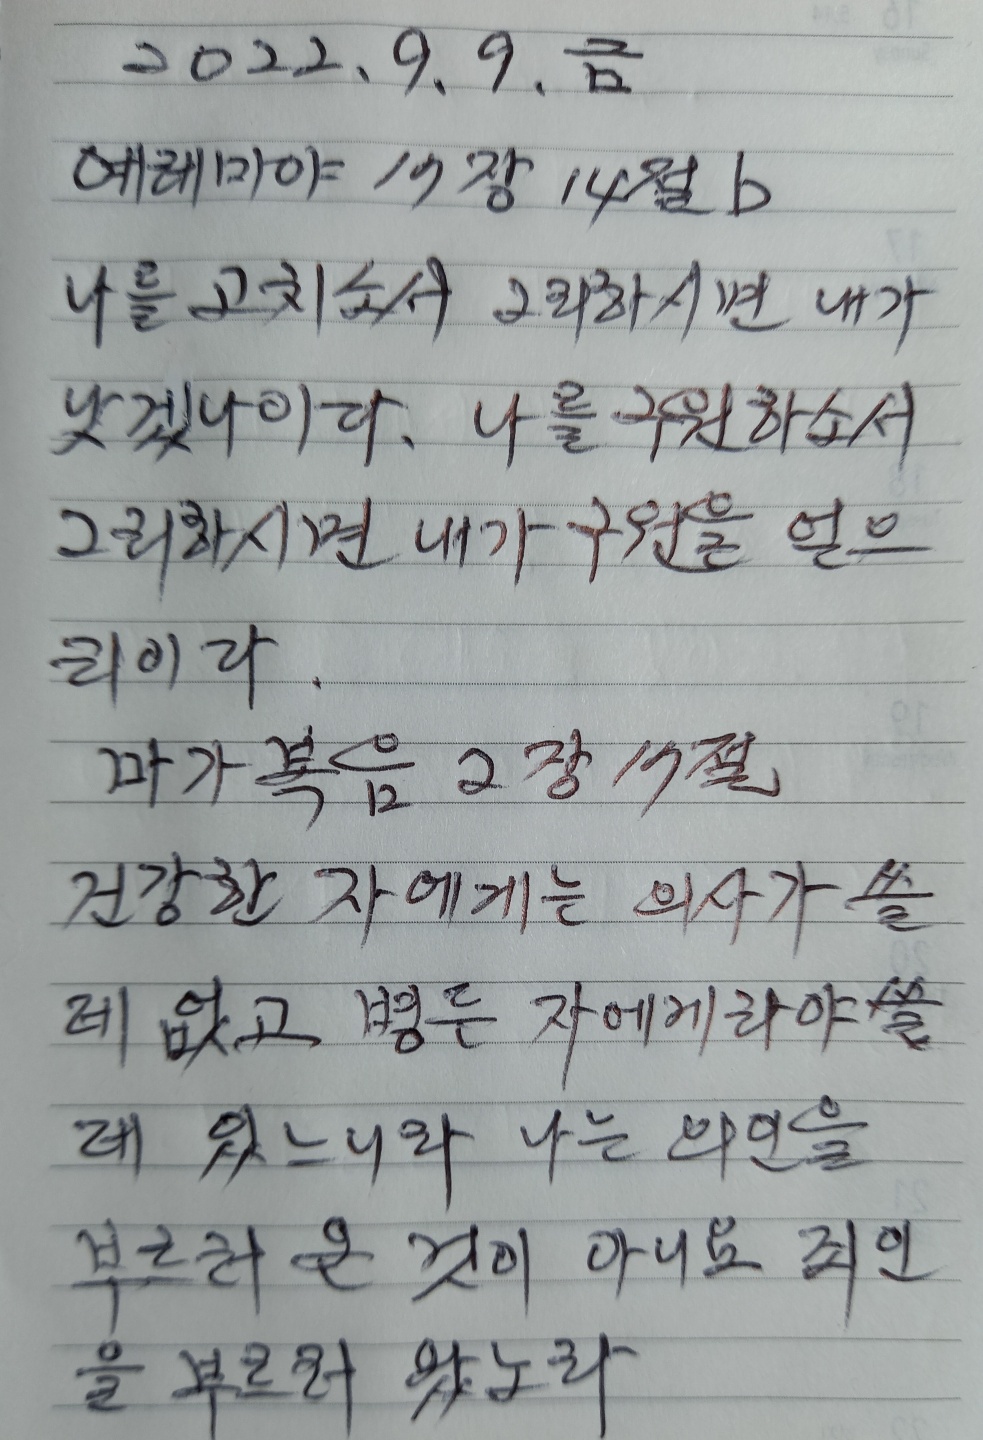 2022. 9. 9. 금
예레미야 17장 14절 b
나를 고치소서 그리하시면 내가
낫겠나이다. 나를 구원하소서
그리하시면 내가 구원을 얻으
리이다.
마가복음 2장 17절
건강한 자에게는 의사가 쓸
데 없고 병든 자에게라야 쓸
데 있느니라 나는 의인을
부르러 온 것이 아니요 죄인
을 부르러 왔노라